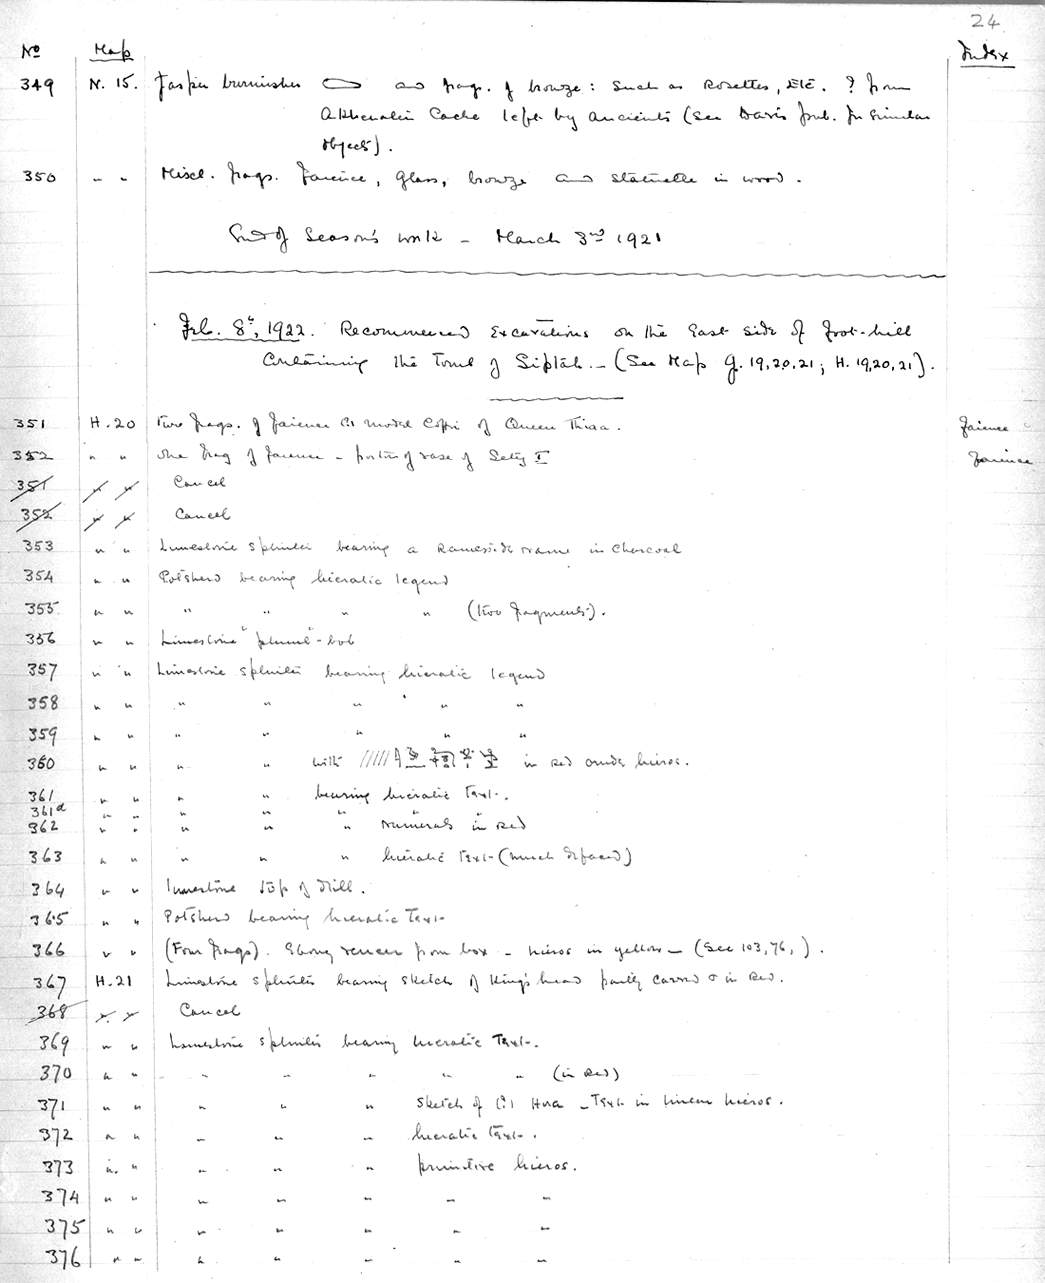 24
No Map Index
349 N. 15. Jasper burnisher and frags. of bronze: such as Rosettes, Etc. ? from
Akhenaten Cache left by ancients (see Davis pub. for similar
objects).
350 " " Miscl. frags. Faience, glass, bronze and statuette in wood.
End of Season's work - March 3rd 1921
Feb. 8th, 1922. Recommenced Excavations on the East side of foot-hill
Containing the Tomb of Siptah. - (See Map G. 19, 20, 21; H. 19, 20, 21).
351 H. 20 Two frags. of faience model Coffin of Queen Thiaa. faience
352 " " One frag of faience - portion of vase of Setey I faience
351 " " Cancel
352 " " Cancel
353 " " Limestone splinter bearing a Rameside name in Charcoal
354 " " Potsherd bearing hieratic legend
355 " " " " " " (two fragments).
356 " " Limestone "plumb"-bob
357 " " Limestone splinter bearing hieratic legend
358 " " " " " " "
359 " " " " " " "
360 " " " " with in red crude hieros.
361 " " " " bearing hieratic Text.
361a " " " " " " "
362 " " " " " Numerals in Red
363 " " " " " hieratic Text (much defaced)
364 " " Limestone top of drill.
365 " " Potsherd bearing hieratic Text
366 " " (Four frags). Ebony veneer from box - hieros in yellow - (See 103, 76, ).
367 H. 21 Limestone splinter bearing sketch of King's head partly carved & in Red.
368 " " Cancel
369 " " Limestone splinter bearing hieratic Text.
370 " " " " " " " (in Red)
371 " " " " " Sketch of - Text in linear hieros.
372 " " " " " hieratic Text.
373 " " " " " primitive hieros.
374 " " " " " " "
375 " " " " " " "
376 " " " " " " "